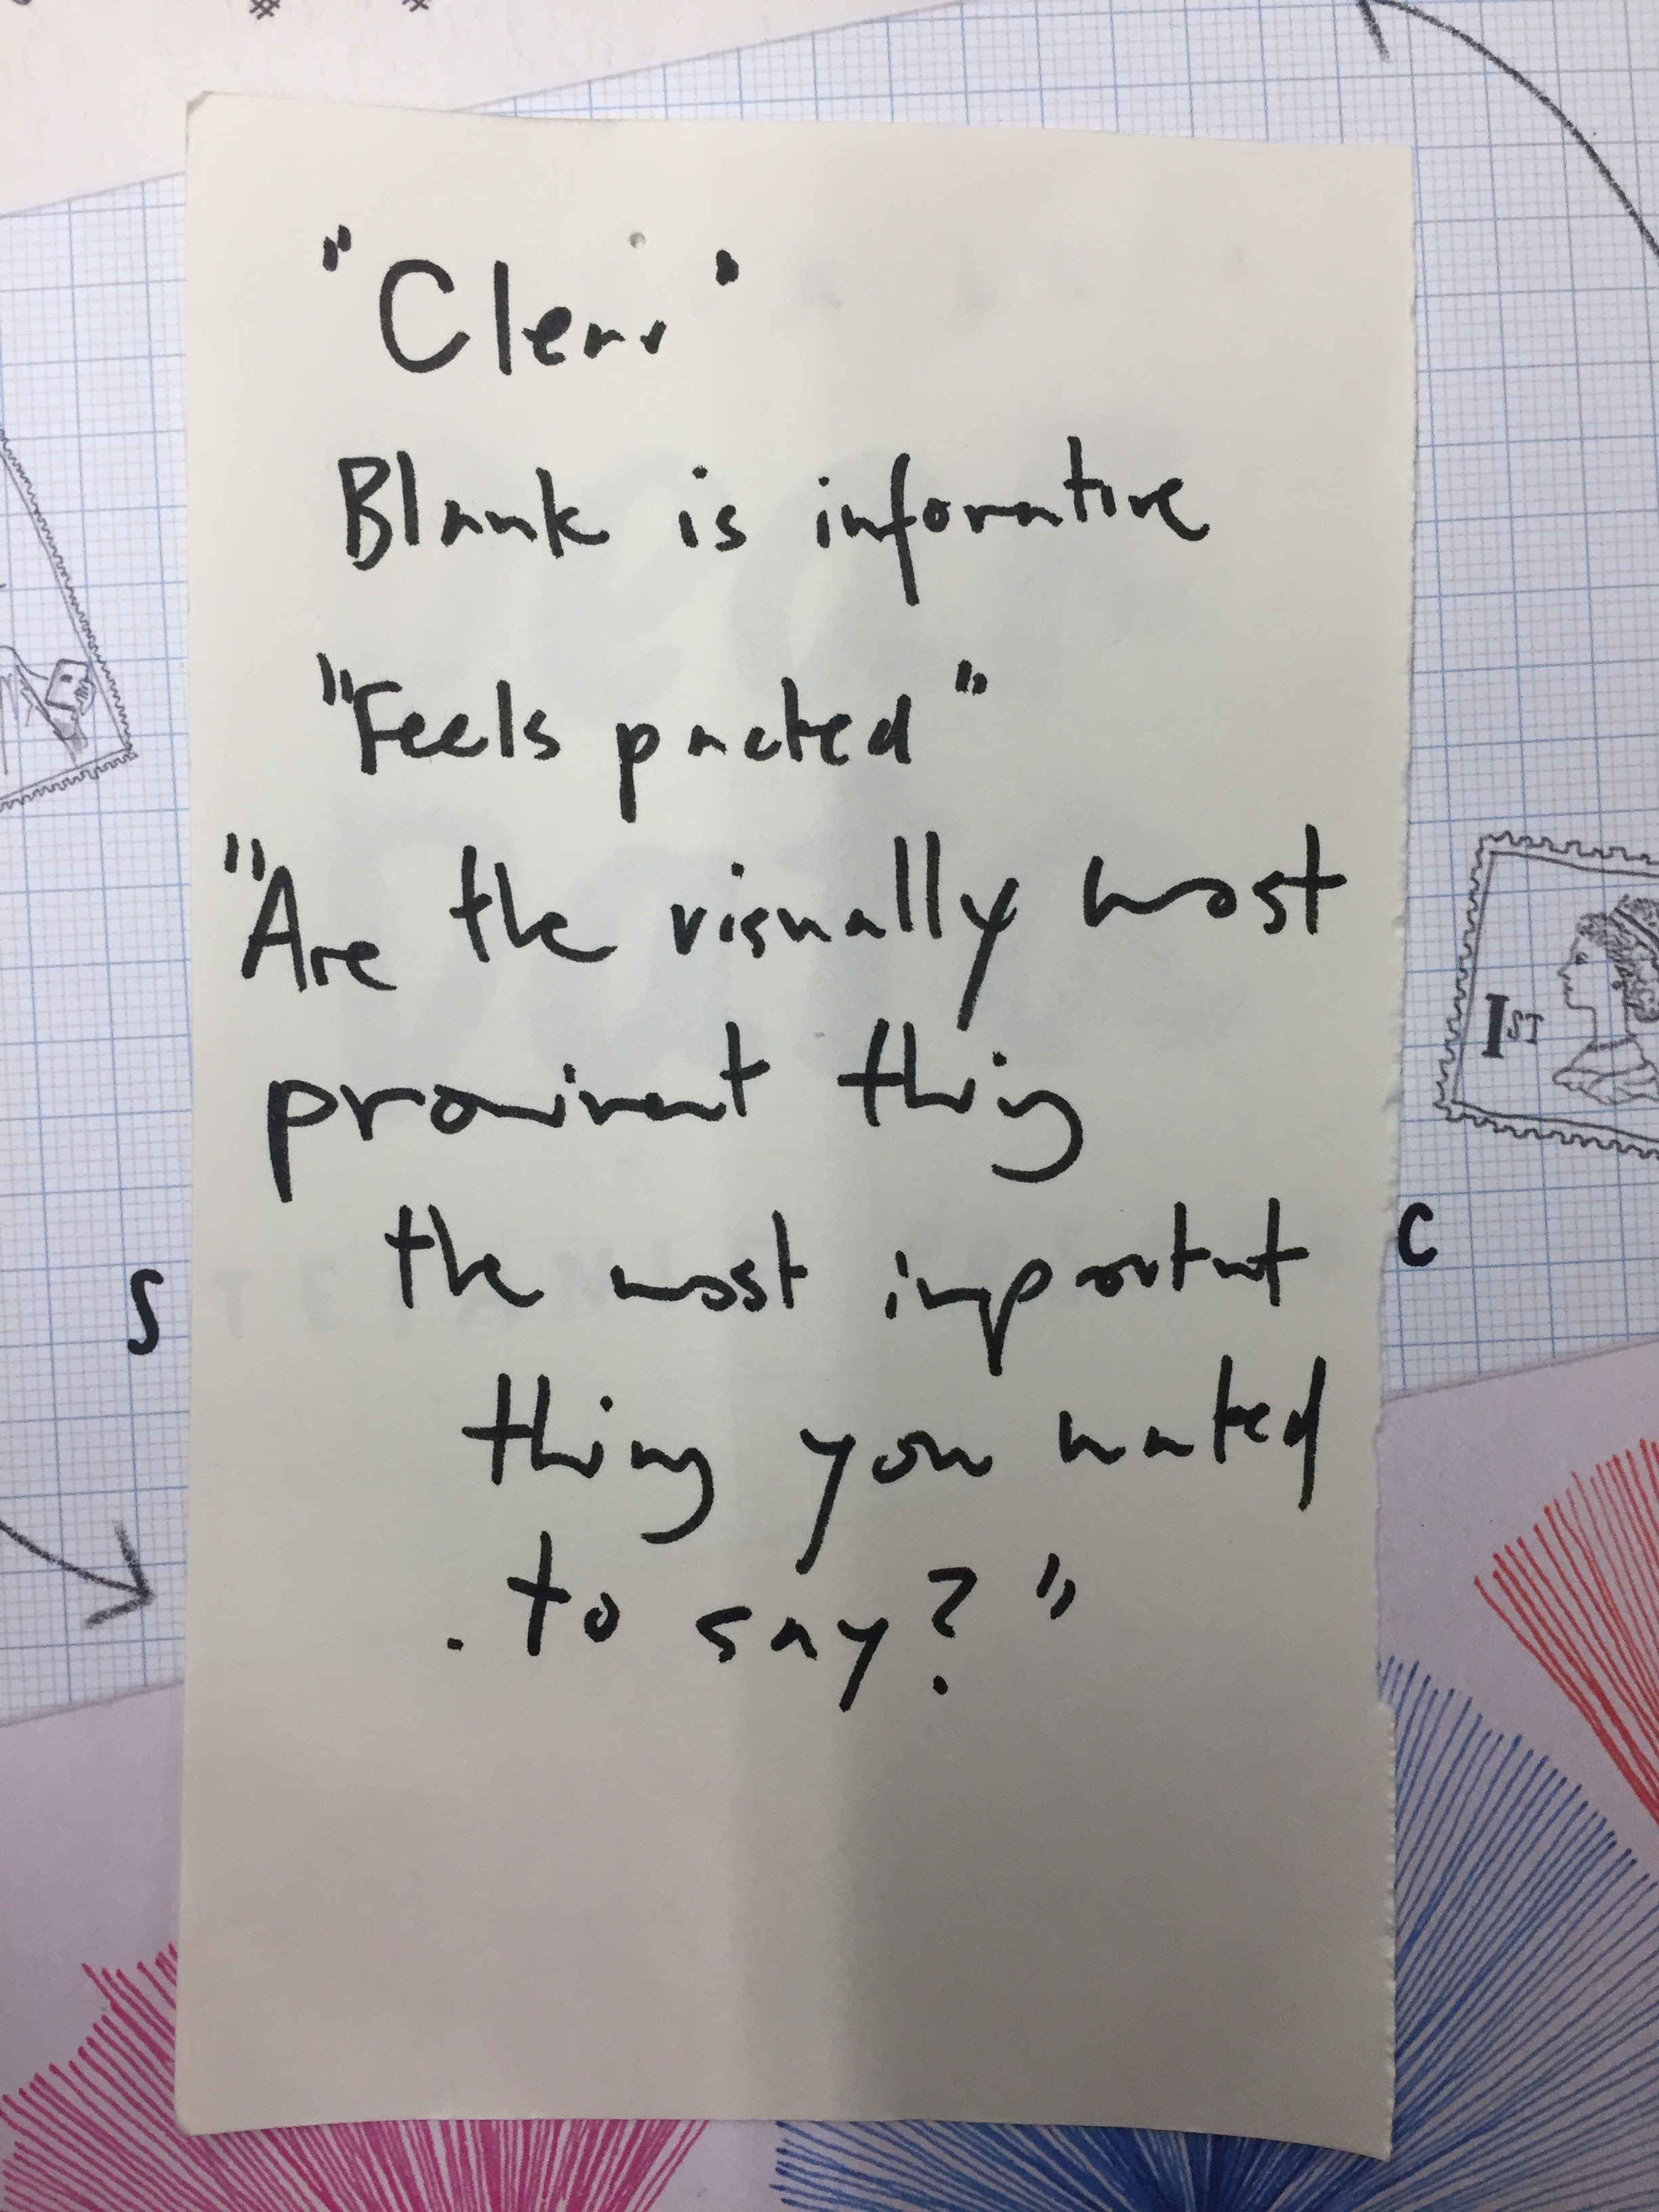 # *
"Clear"
Blank is informative
"Feels packed"
"Are the visually most
prominent thing
the most important
thing you wanted
to say?"
1ST
S
C